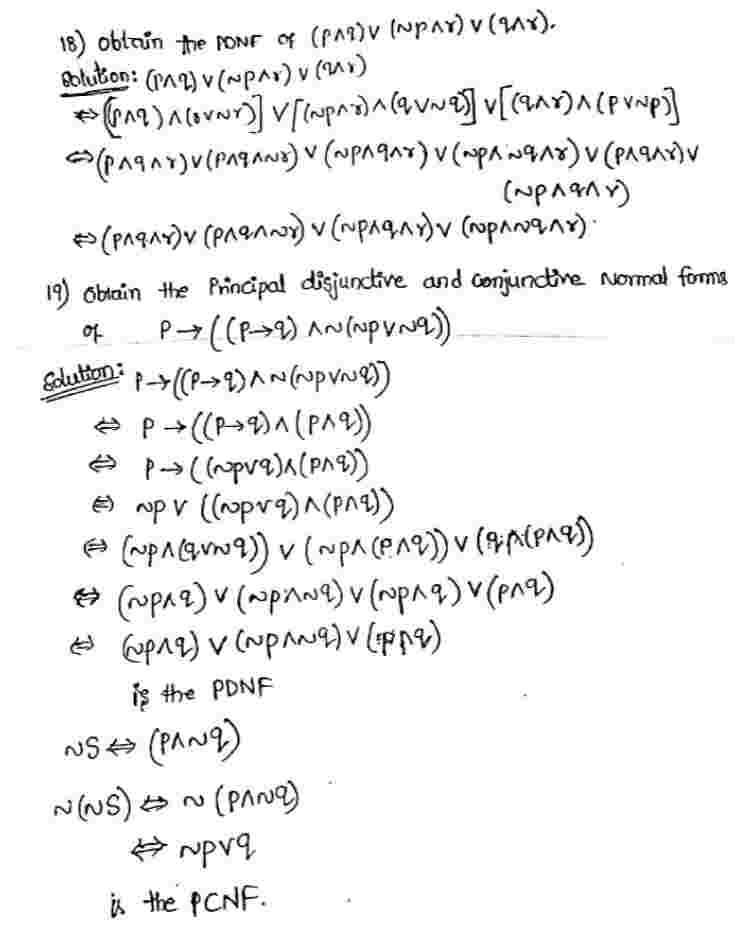 18) Obtain the PDNF of (p∧q)∨(~p∧r)∨(q∧r).
Solution: (p∧q)∨(~p∧r)∨(q∧r)
⇔[(p∧q)∧(r∨~r)]∨[(~p∧r)∧(q∨~q)]∨[(q∧r)∧(p∨~p)]
⇔(p∧q∧r)∨(p∧q∧~r)∨(~p∧q∧r)∨(~p∧~q∧r)∨(p∧q∧r)∨
(~p∧q∧r)
⇔(p∧q∧r)∨(p∧q∧~r)∨(~p∧q∧r)∨(~p∧~q∧r).
19) Obtain the Principal disjunctive and Conjunctive Normal forms
of P→((P→q)∧~(~p∨~q))
Solution: P→((P→q)∧~(~p∨~q))
⇔ P→((P→q)∧(p∧q))
⇔ P→((~p∨q)∧(p∧q))
⇔ ~p∨((~p∨q)∧(p∧q))
⇔ (~p∧(q∨~q))∨(~p∧(p∧q))∨(q∧(p∧q))
⇔ (~p∧q)∨(~p∧~q)∨(~p∧q)∨(p∧q)
⇔ (~p∧q)∨(~p∧~q)∨(p∧q)
is the PDNF
~S⇔(P∧~q)
~(~S)⇔~(p∧~q)
⇔~p∨q
is the PCNF.